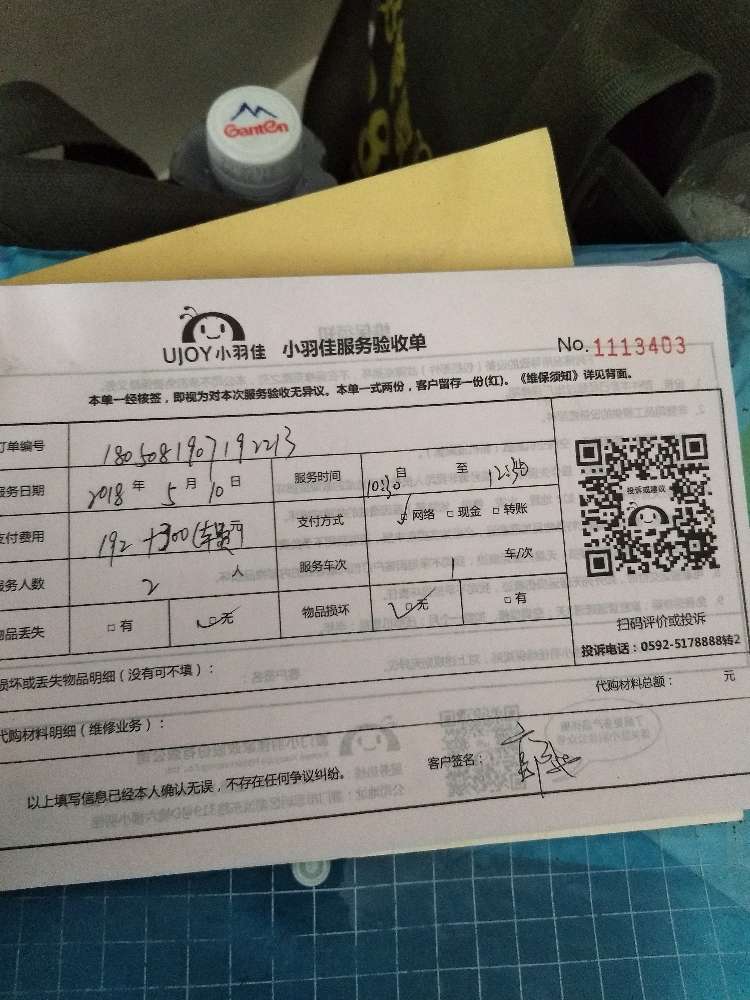 GanTen
UJOY小羽佳 小羽佳服务验收单 No. 1113403
本单一经核签，即视为对本次服务验收无异议。本单一式两份，客户留存一份(红)。《维保须知》详见背面。
订单编号 1805081907192213
服务日期 2018 年 5 月 10 日 服务时间 10:30 自 至 12:30
支付费用 192 +300 元 支付方式 网络 □ 现金 □ 转账
服务人数 2 人 服务车次 车/次
物品丢失 □ 有 □ 无 物品损坏 □ 无 □ 有
投诉或建议
扫码评价或投诉
投诉电话：0592-5178888转2
损坏或丢失物品明细（没有可不填）：
代购材料总额： 元
代购材料明细（维修业务）：
客户签名：
以上填写信息已经本人确认无误，不存在任何争议纠纷。